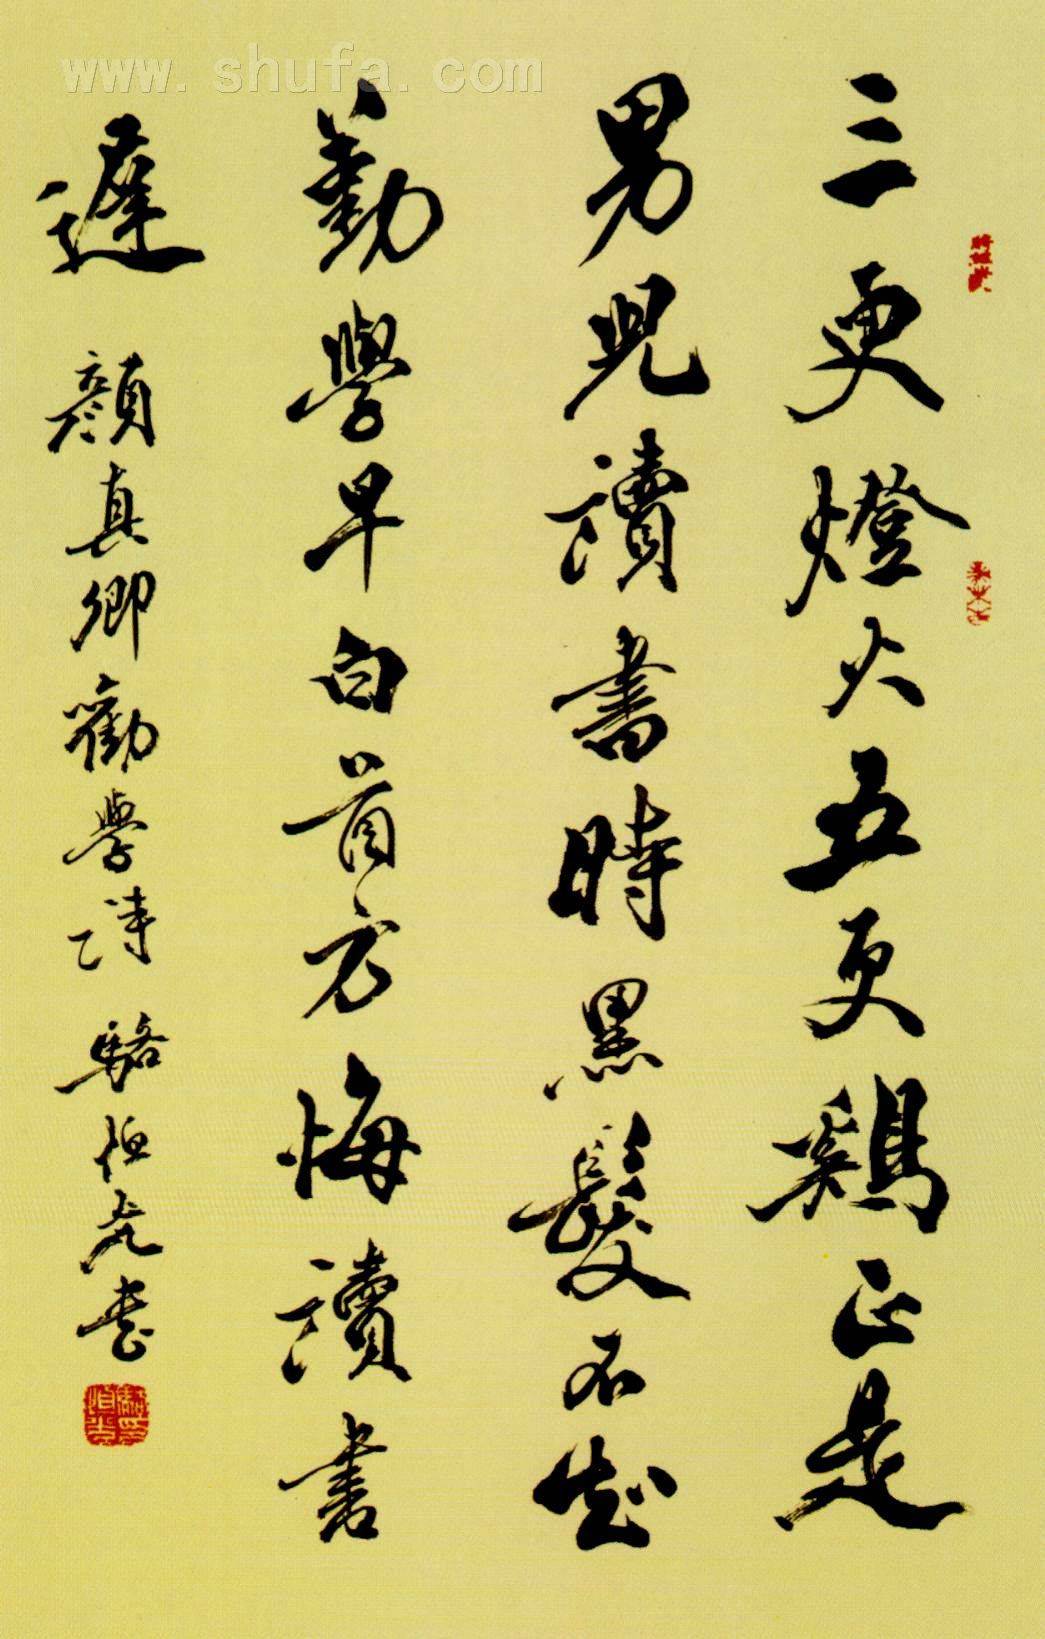 www.shufa.com
三更燈火五更鷄正是
男兒讀書時黑髮不知
勤學早白首方悔讀書
遲
顏真卿勸學詩 駱恒光書